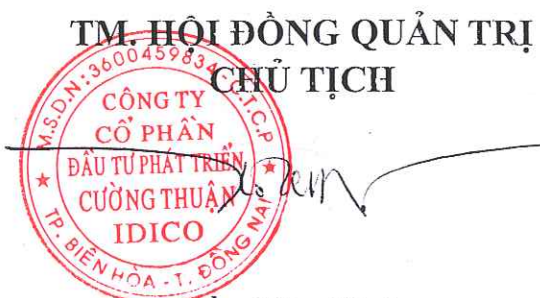 TM. HỘI ĐỒNG QUẢN TRỊ
CHỦ TỊCH
M.S.D.N: 3600459834 C.T.C.P
CÔNG TY
CỔ PHẦN
ĐẦU TƯ PHÁT TRIỂN
CƯỜNG THUẬN
IDICO
TP. BIÊN HÒA - T. ĐỒNG NAI